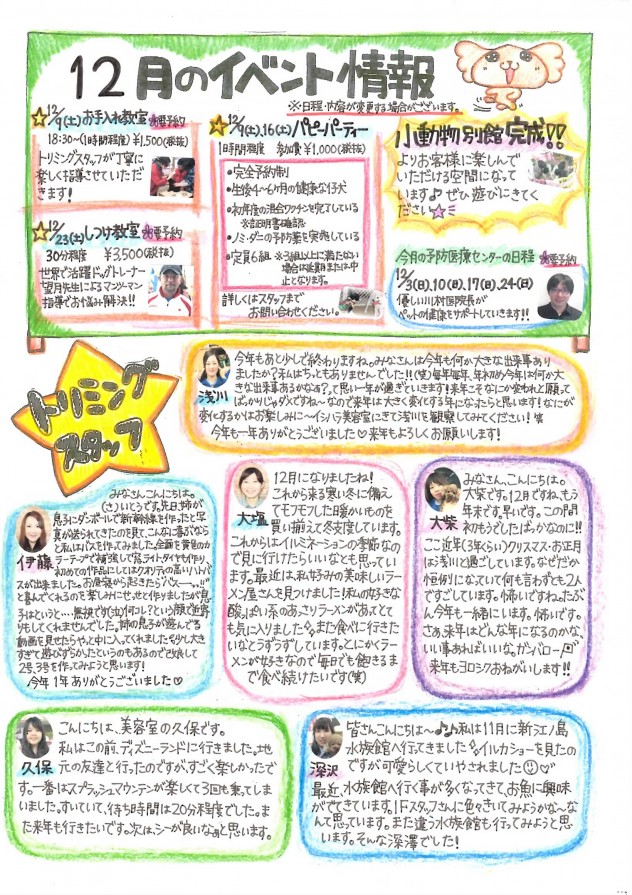 12月のイベント情報
※日程・内容が変更する場合がございます。
12/9(土)お手入れ教室 要予約
18:30~(1時間程度) ¥1,500(税抜)
トリミングスタッフが丁寧に
楽しく指導させていただ
きます!
12/23(土)しつけ教室 要予約
30分程度 ¥3,500(税抜)
世界で活躍ドッグトレーナー
望月先生によるマンツーマン
指導でお悩み解決!!
12/9(土),16(土)パピーパーティー
1時間程度 参加費¥1,000(税抜)
・完全予約制
・生後4~6ヶ月の健康な仔犬
・初年度の混合ワクチンを完了している
※証明書確認
・ノミ・ダニの予防薬を実施している
・定員6組 ※3組以上に満たない
場合は延期または中
止となります。
詳しくはスタッフまで
お問い合わせください。
小動物別館完成!!
よりお客様に楽しんで
いただける空間になって
います♪ぜひ遊びにきてく
ださい☆
今月の予防医療センターの日程 要予約
12/3(日),10(日),17(日),24(日)
優しい川村医院長が
ペットの健康をサポートしていきます!!
トリミング
スタッフ
浅川
今年もあと少しで終わりますね。みなさんは今年も何か大きな出来事あり
ましたか?私はちっともありませんでした!!(笑)毎年毎年、年初め今年は何か大
きな出来事あるかなぁ?って思い一年が過ぎていきます!来年こそなにか変われと願って
ばっかりじゃダメですね~なので来年は大きく変化する年になったらと思います!なにが
変化するかはお楽しみに~イシハラ美容室にきて浅川を観察してみてください!笑
今年も一年ありがとうございました♡来年もよろしくお願いします!
伊藤
みなさんこんにちは。
(さ)いとうです。先日、姉が
息子にダンボールで新幹線を作ったと写
真が送られてきたのを見て、こんなに喜ぶなら
と私はバスを作ってみました。全面を黄色のカ
ラーテープで補強して窓、ライト、タイヤも作り、
初めての作品にしてはクオリティの高いバス
が出来ました。お昼寝から起きたら「バスーー。!!」
と喜んでくれるのを楽しみにせっせと作りましたが息
子はというと…無視です(泣)何コレ?という顔で近寄
りもしてくれませんでした。姉の息子が遊んでる
動画を見せたらやっと中に入ってくれました。少し大き
すぎて遊びずらかったというのもあるので改良して
2号、3号を作ってみようと思います!
今年1年ありがとうございました♡
大塩
12月になりましたね!
これから来る寒い冬に備え
てモフモフした暖かいものを
買い揃えて冬支度しています。
これからはイルミネーションの季節なの
で見に行けたらいいなとも思ってい
ます。最近は、私好みの美味しいラー
メン屋さんを見つけました!私の好きな
酸っぱい系のあっさりラーメンがあってと
ても気に入りました。また食べに行きた
いなとうずうずしています。とにかくラー
メンが好きなので毎日でも飽きるまま
で食べ続けたいです(笑)
大柴
みなさん、こんにちは。
大柴です。12月ですね、もう
年末です。早いです。この間
初もうでしたばっかなのに!!
ここ近年(3年くらい)クリスマス・お正月
は浅川と過ごしています。なぜだか
恒例になっていて何も言わずとも2人
ですごしています。怖いですね。たぶ
ん今年も一緒にいます。怖いです。
さぁ、来年はどんな年になるのかな、
いい事あればいいな。ガンバロー
来年もヨロシクおねがいします!!
久保
こんにちは、美容室の久保です。
私はこの前、ディズニーランドに行きました。地
元の友達と行ったのですが、すごく楽しかったで
す。一番はスプラッシュマウンテンが楽しくて3回も乗ってしま
いました。すいていて、待ち時間は20分程度でした。ま
た来年も行きたいです。次はシーが良いなぁと思います。
深沢
皆さんこんにちは~♪♪私は11月に新江ノ島
水族館へ行ってきました。イルカショーを見たの
ですが可愛らしくていやされました♡
最近、水族館へ行く事が多くなってきて、お魚に興味
がでてきています。1Fスタッフさんに色々きいてみようかな~な
んて思っています。また違う水族館も行ってみようと思
います。そんな深澤でした!